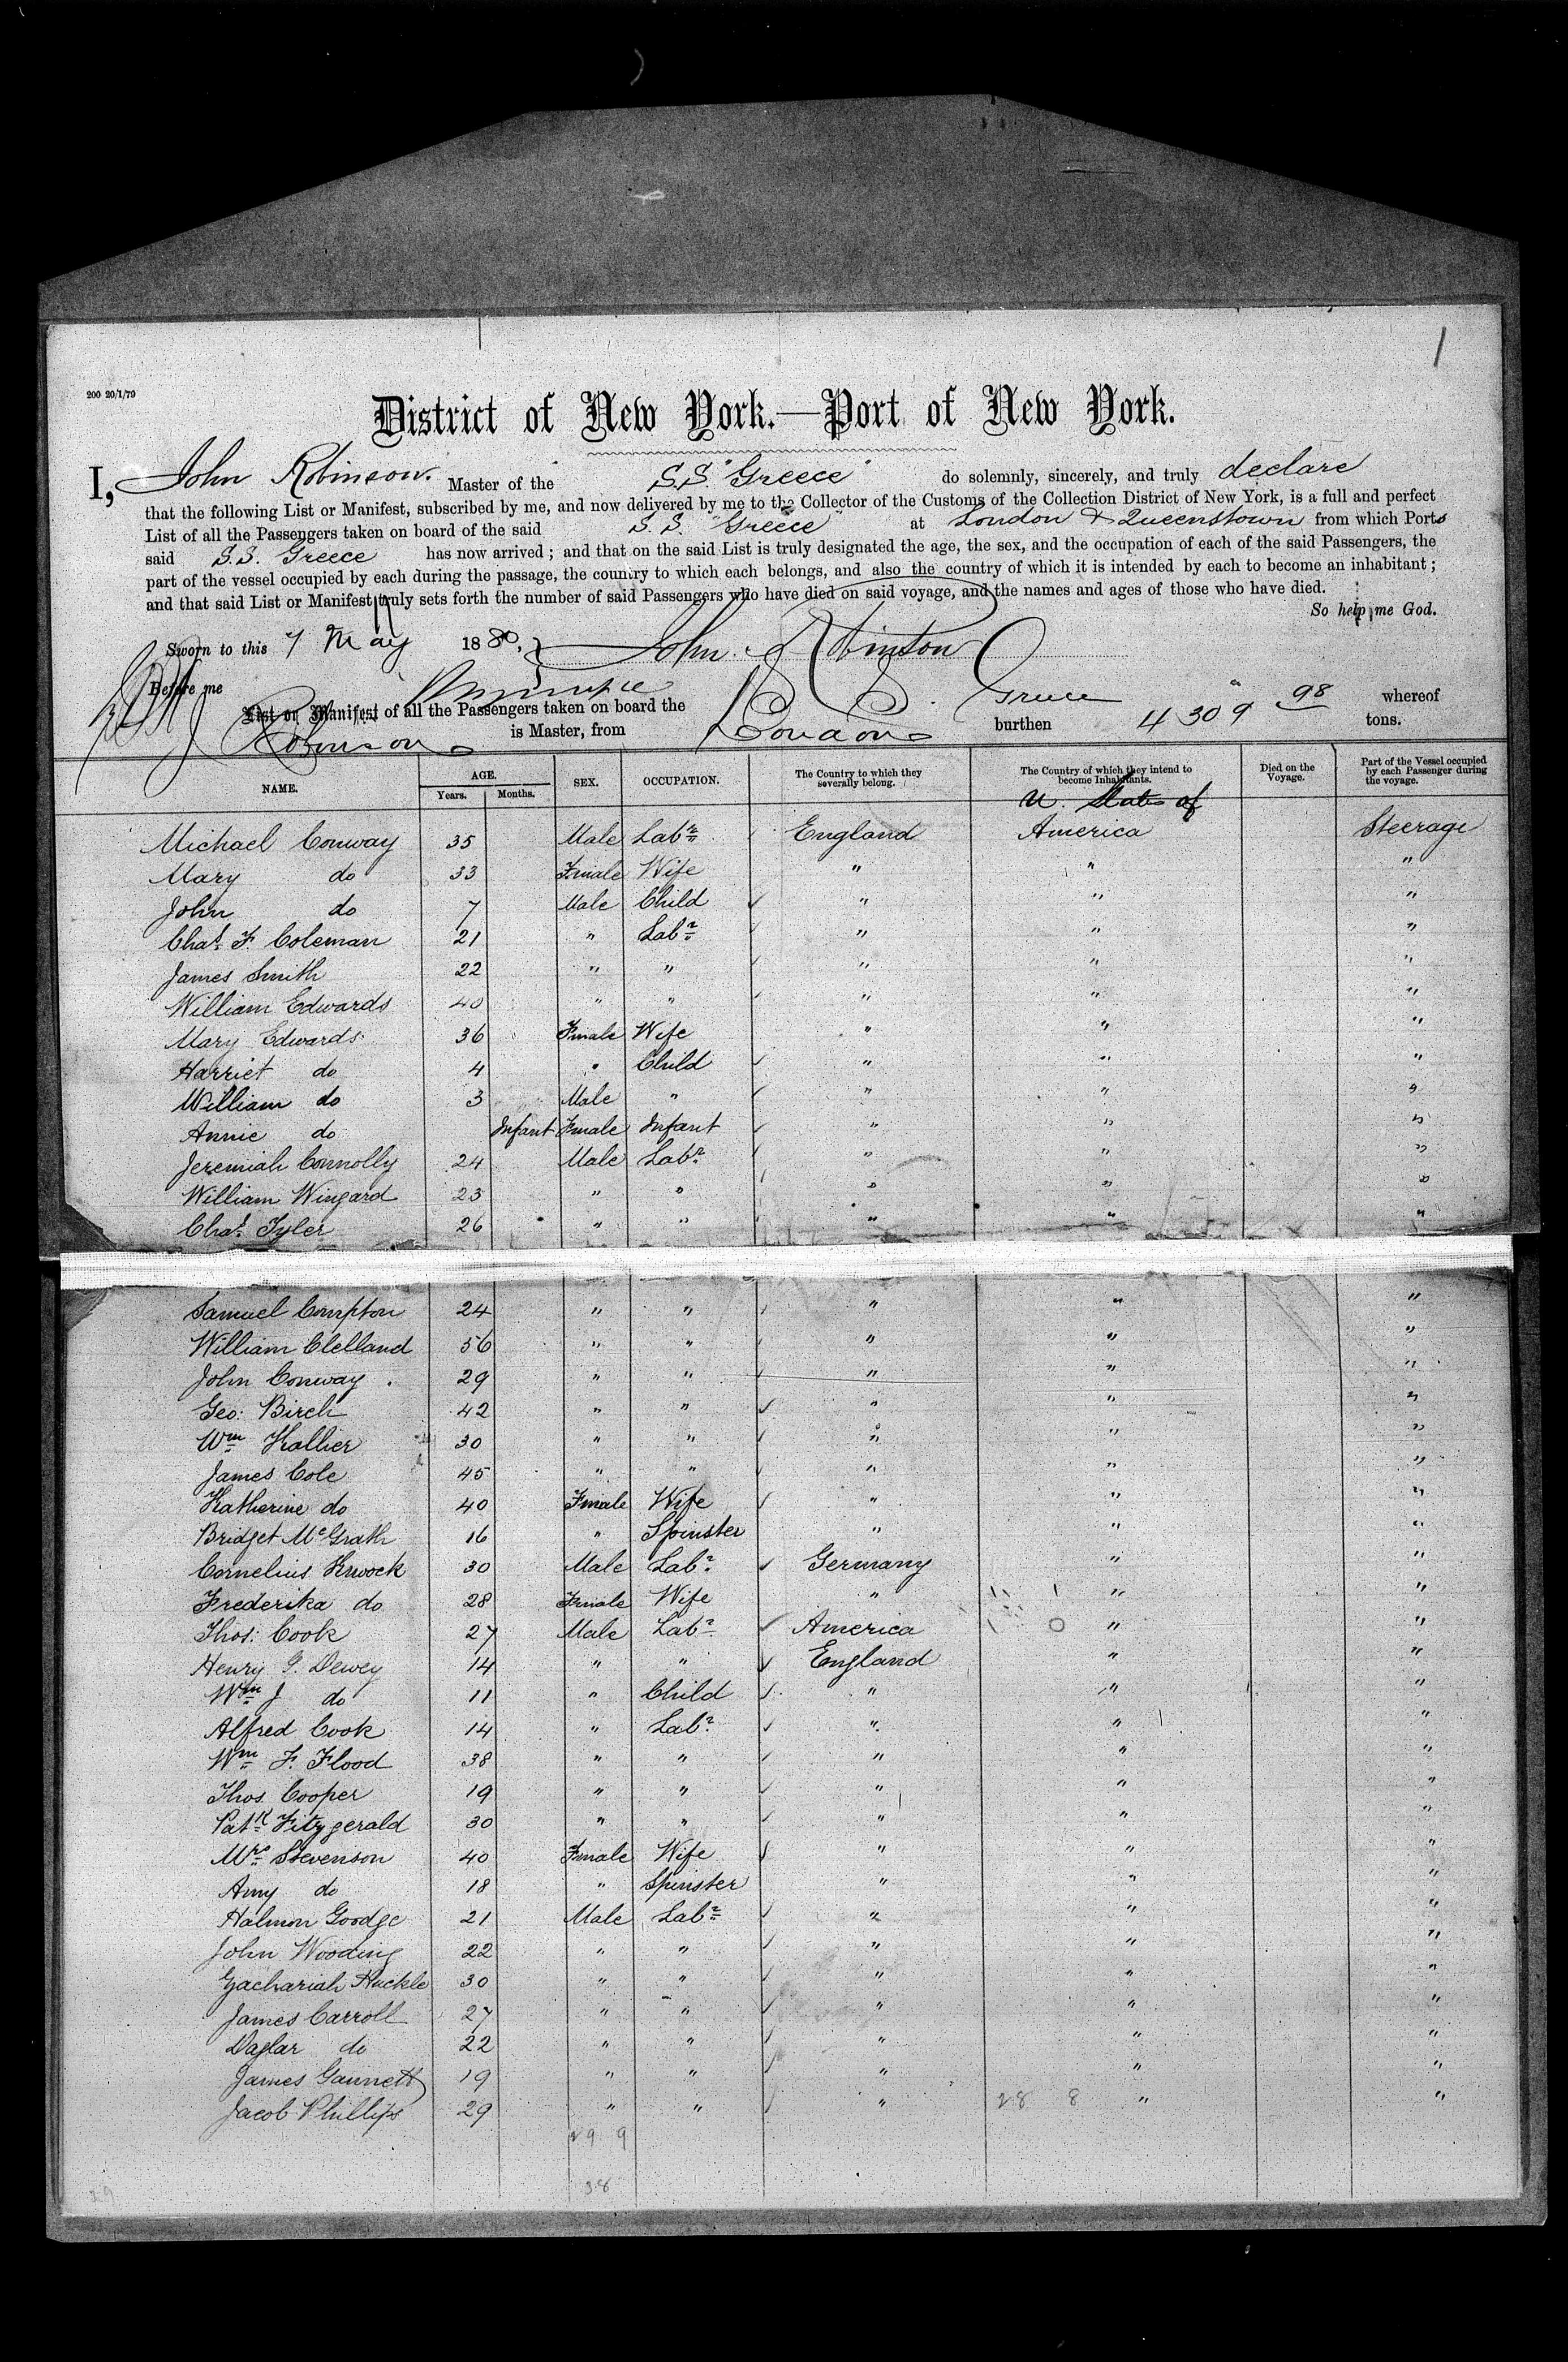 1
200 20/1/79
District of New York.—Port of New York.
I, John Robinson. Master of the S.S. "Greece" do solemnly, sincerely, and truly declare
that the following List or Manifest, subscribed by me, and now delivered by me to the Collector of the Customs of the Collection District of New York, is a full and perfect
List of all the Passengers taken on board of the said S.S. "Greece" at London & Queenstown from which Ports
said S.S. Greece has now arrived; and that on the said List is truly designated the age, the sex, and the occupation of each of the said Passengers, the
part of the vessel occupied by each during the passage, the country to which each belongs, and also the country of which it is intended by each to become an inhabitant;
and that said List or Manifest truly sets forth the number of said Passengers who have died on said voyage, and the names and ages of those who have died.
So help me God.
Sworn to this 7 May 1880, John Robinson
Before me
List or Manifest of all the Passengers taken on board the S.S. Greece whereof
Robinson is Master, from London burthen 4309 98 tons.
NAME. AGE. SEX. OCCUPATION. The Country to which they severally belong. The Country of which they intend to become Inhabitants. Died on the Voyage. Part of the Vessel occupied by each Passenger during the voyage.
Years. Months.
U. States of
Michael Conway 35 Male Labr England America Steerage
Mary do 33 Female Wife " " "
John do 7 Male Child " " "
Chas. F. Coleman 21 " Labr " " "
James Smith 22 " " " " "
William Edwards 40 " " " " "
Mary Edwards 36 Female Wife " " "
Harriet do 4 " Child " " "
William do 3 Male " " " "
Annie do Infant Female Infant " " "
Jeremiah Connolly 24 Male Labr " " "
William Wingard 23 " " " " "
Chas. Tyler 26 " " " " "
Samuel Compton 24 " " " " "
William Clelland 56 " " " " "
John Conway 29 " " " " "
Geo: Birch 42 " " " " "
Wm Hallier 30 " " " " "
James Cole 45 " " " " "
Katherine do 40 Female Wife " " "
Bridget McGrath 16 " Spinster " " "
Cornelius 30 Male Labr Germany " "
Frederika do 28 Female Wife " " "
Thos: Cook 27 Male Labr America " "
Henry G. Dewey 14 " " England " "
Wm J do 11 " Child " " "
Alfred Cook 14 " Labr " " "
Wm F. Flood 38 " " " " "
Thos. Cooper 19 " " " " "
Patk Fitzgerald 30 " " " " "
Mrs Stevenson 40 Female Wife " " "
Amy do 18 " Spinster " " "
Halmon Goodge 21 Male Labr " " "
John Wooding 22 " " " " "
Zachariah Huckle 30 " " " " "
James Carroll 27 " " " " "
do 22 " " " " "
James Gannett 19 " " " " "
Jacob Phillips 29 " " " 28 8 " "
29 9
38
29